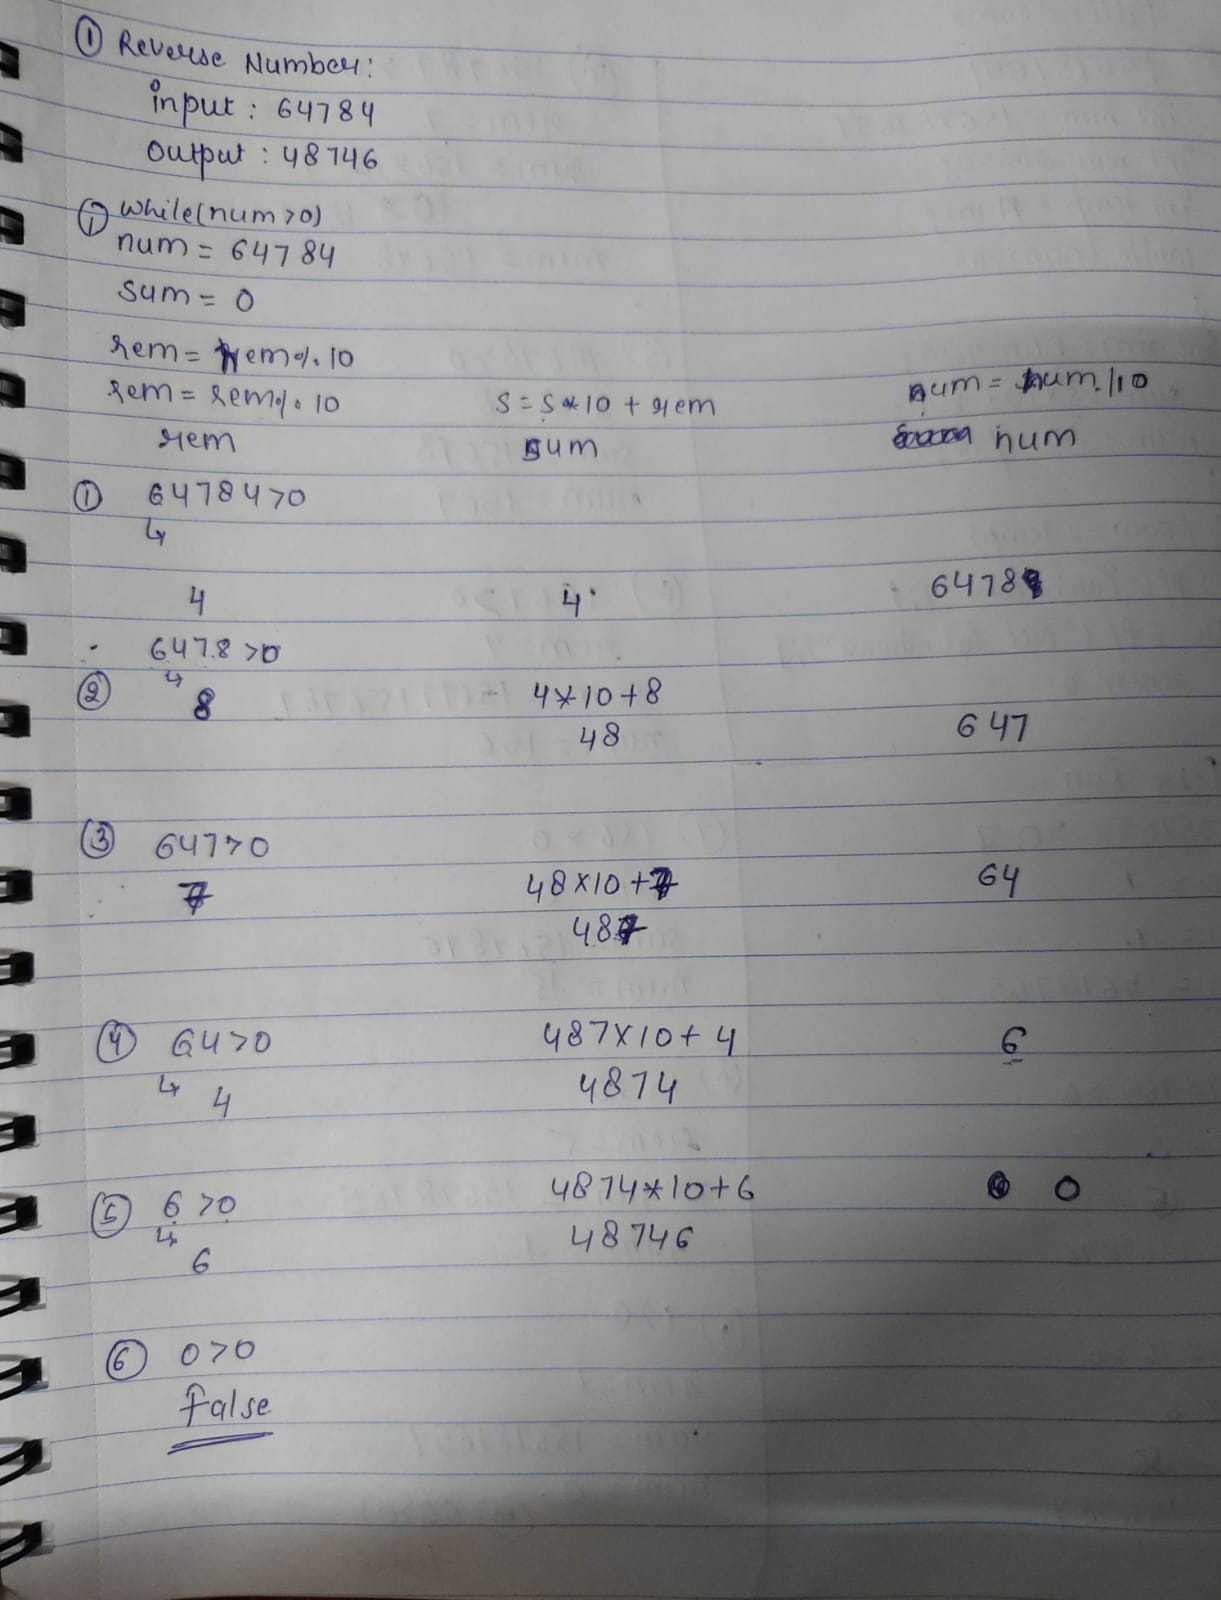 ① Reverse Number:
input : 64784
output : 48746
① while(num>0)
num = 64784
sum = 0
rem = rem % 10
rem = rem % 10 s = s * 10 + rem num = num / 10
rem sum num
① 64784>0
↳
4 4 6478
6478>0
② ↳ 8 4*10+8
48 647
③ 647>0
7 48×10+7 64
487
④ 64>0 487×10+4 6
↳ 4 4874
⑤ 6>0 4874*10+6 0
↳ 48746
6
⑥ 0>0
false